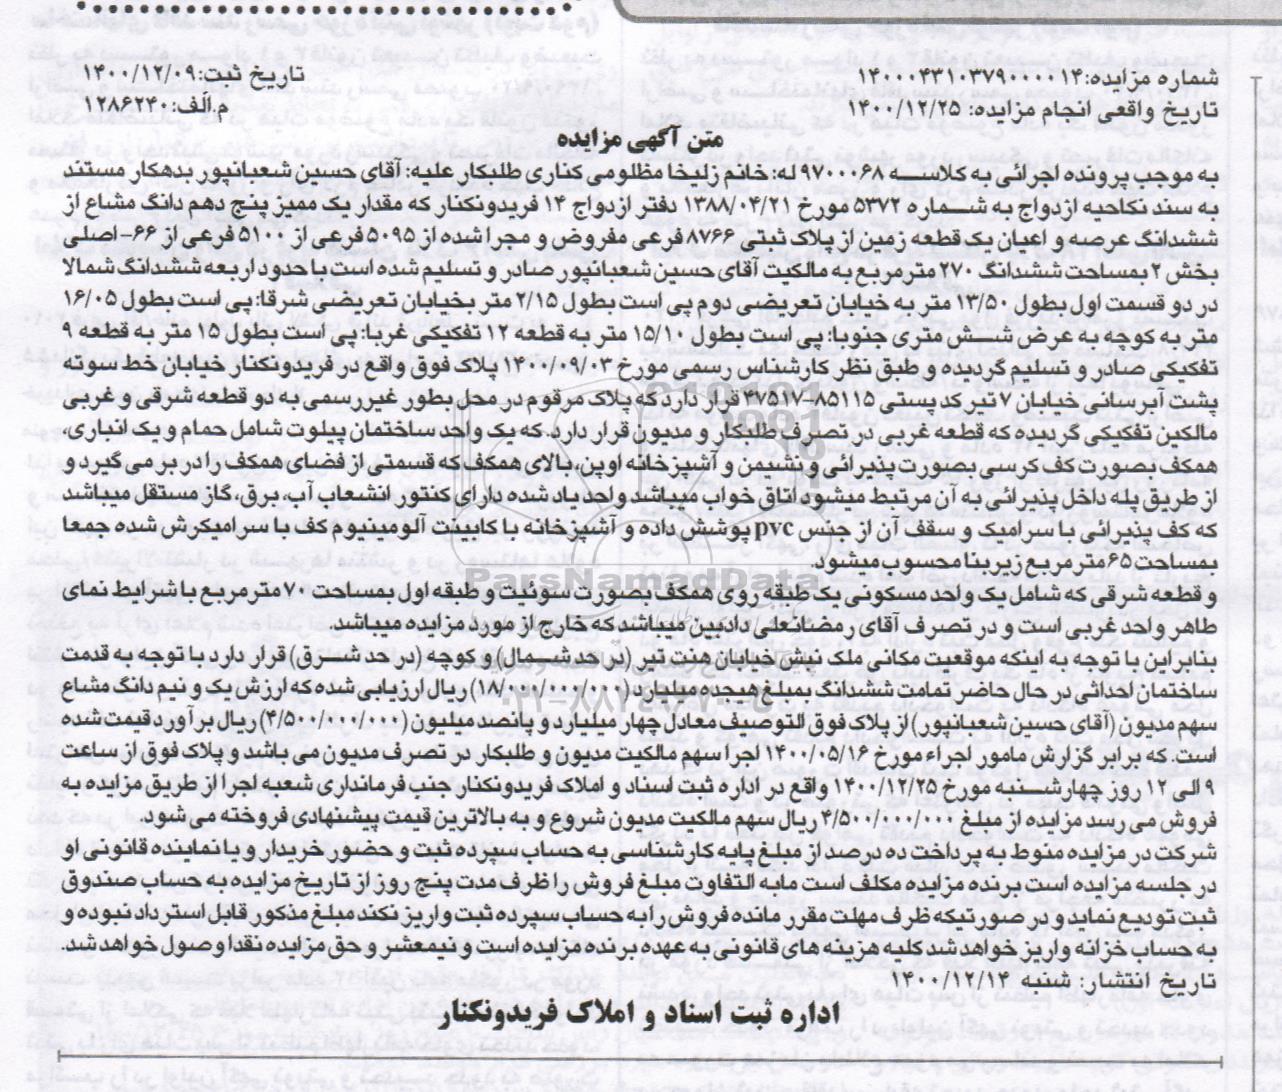 شماره مزایده:۱۴۰۰۰۴۳۱۰۳۷۹۰۰۰۰۱۴
تاریخ ثبت:۱۴۰۰/۱۲/۰۹
تاریخ واقعی انجام مزایده: ۱۴۰۰/۱۲/۲۵
م.الف:۱۲۸۶۲۴۰
متن آگهی مزایده
به موجب پرونده اجرائی به کلاسه ۹۷۰۰۰۶۸ له: خانم زلیخا مظلومی کناری طلبکار علیه: آقای حسین شعبانپور بدهکار مستند
به سند نکاحیه ازدواج به شماره ۵۳۷۲ مورخ ۱۳۸۸/۰۴/۲۱ دفتر ازدواج ۱۴ فریدونکنار که مقدار یک ممیز پنج دهم دانگ مشاع از
ششدانگ عرصه و اعیان یک قطعه زمین از پلاک ثبتی ۸۷۶۶ فرعی مفروض و مجرا شده از ۵۰۹۵ فرعی از ۵۱۰۰ فرعی از ۶۶-اصلی
بخش ۲ بمساحت ششدانگ ۲۷۰ مترمربع به مالکیت آقای حسین شعبانپور صادر و تسلیم شده است با حدود اربعه ششدانگ شمالا
در دو قسمت اول بطول ۱۳/۵۰ متر به خیابان تعریضی دوم پی است بطول ۲/۱۵ متر بخیابان تعریضی شرقا: پی است بطول ۱۶/۰۵
متر به کوچه به عرض شش متری جنوبا: پی است بطول ۱۵/۱۰ متر به قطعه ۱۲ تفکیکی غربا: پی است بطول ۱۵ متر به قطعه ۹
تفکیکی صادر و تسلیم گردیده و طبق نظر کارشناس رسمی مورخ ۱۴۰۰/۰۹/۰۳ پلاک فوق واقع در فریدونکنار خیابان خط سوته
پشت آبرسانی خیابان ۷ تیر کد پستی ۸۵۱۱۵-۴۷۵۱۷ قرار دارد که پلاک مرقوم در محل بطور غیررسمی به دو قطعه شرقی و غربی
مالکین تفکیک گردید که قطعه غربی در تصرف طلبکار و مدیون قرار دارد که یک واحد ساختمان پیلوت شامل حمام و یک انباری،
همکف بصورت کف کرسی بصورت پذیرائی و نشیمن و آشپزخانه اوپن، بالای همکف که قسمتی از فضای همکف را در بر می گیرد و
از طریق پله داخل پذیرائی به آن مرتبط میشود اتاق خواب میباشد واحد یاد شده دارای کنتور انشعاب آب، برق، گاز مستقل میباشد
که کف پذیرائی با سرامیک و سقف آن از جنس pvc پوشش داده و آشپزخانه با کابینت آلومینیوم کف با سرامیکرش شده جمعا
بمساحت ۶۵ مترمربع زیربنا محسوب میشود.
و قطعه شرقی که شامل یک واحد مسکونی یک طبقه روی همکف بصورت سوئیت و طبقه اول بمساحت ۷۰ مترمربع با شرایط نمای
ظاهر واحد غربی است و در تصرف آقای رمضانعلی دادبین میباشد که خارج از مورد مزایده میباشد.
بنابراین با توجه به اینکه موقعیت مکانی ملک نبش خیابان هفت تیر (در حد شمال) و کوچه (در حد شرق) قرار دارد با توجه به قدمت
ساختمان احداثی در حال حاضر تمامت ششدانگ بمبلغ هیجده میلیارد (۱۸/۰۰۰/۰۰۰/۰۰۰) ریال ارزیابی شده که ارزش یک و نیم دانگ مشاع
سهم مدیون (آقای حسین شعبانپور) از پلاک فوق التوصیف معادل چهار میلیارد و پانصد میلیون (۴/۵۰۰/۰۰۰/۰۰۰) ریال برآورد قیمت شده
است که برابر گزارش مامور اجراء مورخ ۱۴۰۰/۰۵/۱۶ اجرا سهم مالکیت مدیون و طلبکار در تصرف مدیون می باشد و پلاک فوق از ساعت
۹ الی ۱۲ روز چهارشنبه مورخ ۱۴۰۰/۱۲/۲۵ واقع در اداره ثبت اسناد و املاک فریدونکنار جنب فرمانداری شعبه اجرا از طریق مزایده به
فروش می رسد مزایده از مبلغ ۴/۵۰۰/۰۰۰/۰۰۰ ریال سهم مالکیت مدیون شروع و به بالاترین قیمت پیشنهادی فروخته می شود.
شرکت در مزایده منوط به پرداخت ده درصد از مبلغ پایه کارشناسی به حساب سپرده ثبت و حضور خریدار و یا نماینده قانونی او
در جلسه مزایده است برنده مزایده مکلف است مابه التفاوت مبلغ فروش را ظرف مدت پنج روز از تاریخ مزایده به حساب صندوق
ثبت تودیع نماید و در صورتیکه ظرف مهلت مقرر مانده فروش را به حساب سپرده ثبت واریز نکند مبلغ مذکور قابل استرداد نبوده و
به حساب خزانه واریز خواهد شد کلیه هزینه های قانونی به عهده برنده مزایده است و نیمعشر و حق مزایده نقدا وصول خواهد شد.
تاریخ انتشار: شنبه ۱۴۰۰/۱۲/۱۴
اداره ثبت اسناد و املاک فریدونکنار
ParsNamadData